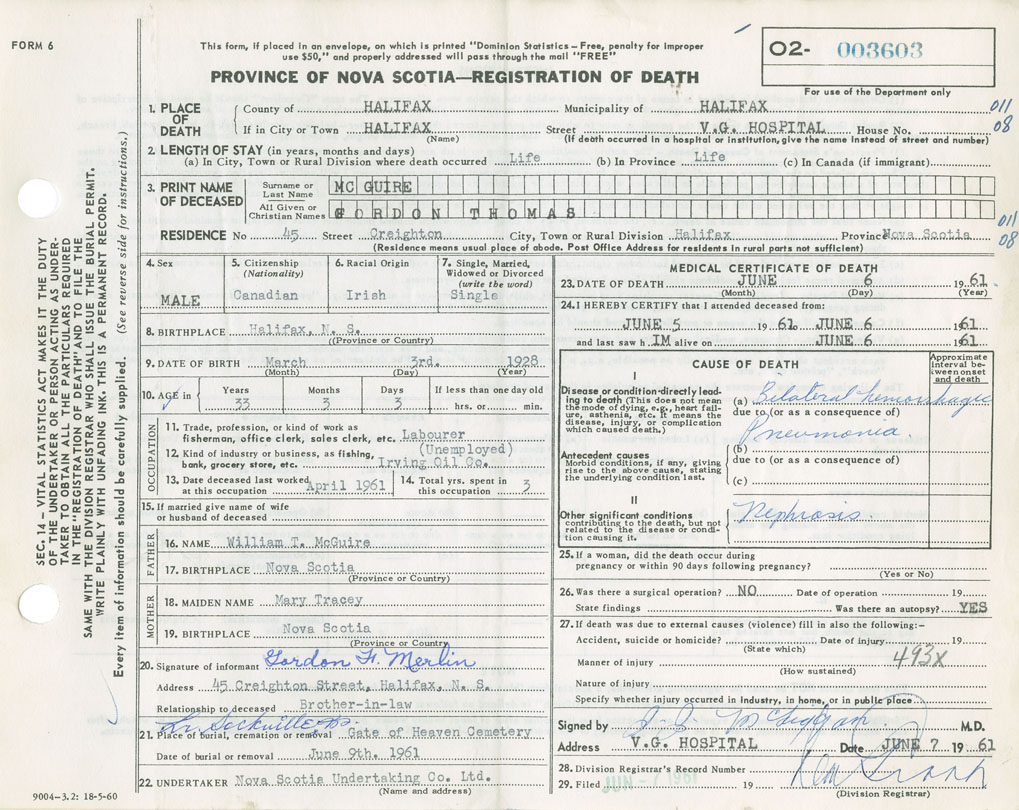 FORM 6
This form, if placed in an envelope, on which is printed "Dominion Statistics – Free, penalty for improper
use $50," and properly addressed will pass through the mail "FREE"
PROVINCE OF NOVA SCOTIA—REGISTRATION OF DEATH
O2- 003603
For use of the Department only
SEC. 14 – VITAL STATISTICS ACT MAKES IT THE DUTY
OF THE UNDERTAKER OR PERSON ACTING AS UNDER-
TAKER TO OBTAIN ALL THE PARTICULARS REQUIRED
IN THE "REGISTRATION OF DEATH" AND TO FILE THE
SAME WITH THE DIVISION REGISTRAR WHO SHALL ISSUE THE BURIAL PERMIT.
WRITE PLAINLY WITH UNFADING INK. THIS IS A PERMANENT RECORD.
Every item of information should be carefully supplied. (See reverse side for instructions.)
1. PLACE OF DEATH
County of HALIFAX Municipality of HALIFAX 011
If in City or Town HALIFAX Street V.G. HOSPITAL House No. 08
(Name) (If death occurred in a hospital or institution, give the name instead of street and number)
2. LENGTH OF STAY (in years, months and days)
(a) In City, Town or Rural Division where death occurred Life (b) In Province Life (c) In Canada (if immigrant)
3. PRINT NAME OF DECEASED
Surname or Last Name MC GUIRE
All Given or Christian Names GORDON THOMAS
011
RESIDENCE No 45 Street Creighton City, Town or Rural Division Halifax Province Nova Scotia 08
(Residence means usual place of abode. Post Office Address for residents in rural parts not sufficient)
4. Sex MALE
5. Citizenship (Nationality) Canadian
6. Racial Origin Irish
7. Single, Married, Widowed or Divorced (write the word) Single
8. BIRTHPLACE Halifax, N. S.
((Province or Country)
9. DATE OF BIRTH March 3rd. 1928
(Month) (Day) (Year)
10. AGE in Years 33 Months 3 Days 3 If less than one day old hrs. or min.
OCCUPATION
11. Trade, profession, or kind of work as
fisherman, office clerk, sales clerk, etc. Labourer
(Unemployed)
12. Kind of industry or business, as fishing,
bank, grocery store, etc. Irving Oil Co.
13. Date deceased last worked at this occupation April 1961
14. Total yrs. spent in this occupation 3
15. If married give name of wife
or husband of deceased
FATHER
16. NAME William T. McGuire
17. BIRTHPLACE Nova Scotia
(Province or Country)
MOTHER
18. MAIDEN NAME Mary Tracey
19. BIRTHPLACE Nova Scotia
(Province or Country
20. Signature of informant Gordon H. Merlin
Address 45 Creighton Street, Halifax, N. S.
Relationship to deceased Brother-in-law
Lr. Sackville
21. Place of burial, cremation or removal Gate of Heaven Cemetery
Date of burial or removal June 9th. 1961
22. UNDERTAKER Nova Scotia Undertaking Co. Ltd.
(Name and address)
9004-3.2: 18-5-60
MEDICAL CERTIFICATE OF DEATH
23. DATE OF DEATH JUNE 6 1961
(Month) (Day) (Year)
24. I HEREBY CERTIFY that I attended deceased from:
JUNE 5 1961 to JUNE 6 1961
and last saw h IM alive on JUNE 6 1961
CAUSE OF DEATH
Approximate interval between onset and death
I
Disease or condition directly lead-
ing to death (This does not mean
the mode of dying, e.g., heart fail-
ure, asthenia, etc. It means the
disease, injury, or complication
which caused death.)
(a) Bilateral hemorrhagic
due to (or as a consequence of)
Pneumonia
Antecedent causes
Morbid conditions, if any, giving
rise to the above cause, stating
the underlying condition last.
(b)
due to (or as a consequence of)
(c)
II
Other significant conditions
contributing to the death, but not
related to the disease or condi-
tion causing it.
Nephrosis
25. If a woman, did the death occur during
pregnancy or within 90 days following pregnancy?
(Yes or No)
26. Was there a surgical operation? NO Date of operation 19
State findings Was there an autopsy? YES
27. If death was due to external causes (violence) fill in also the following:–
Accident, suicide or homicide? Date of injury 19
(State which)
Manner of injury 493X
(How sustained)
Nature of injury
Specify whether injury occurred in industry, in home, or in public place
Signed by M.D.
Address V.G. HOSPITAL Date JUNE 7 1961
28. Division Registrar's Record Number
29. Filed JUN - 7 1961 19
(Division Registrar)